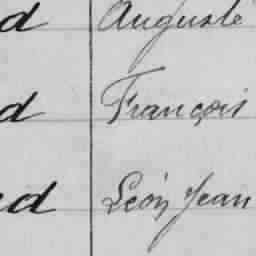 d Auguste
d François
ed Léon Jean